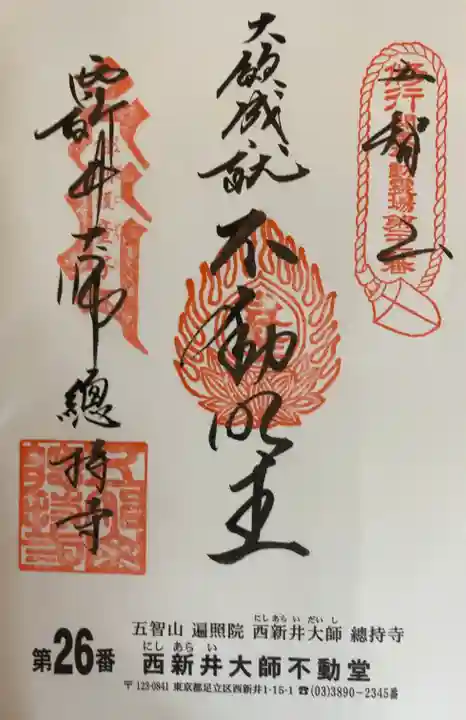 五智山
大願成就
不動明王
西新井大師
總持寺
五智山 遍照院 西新井大師 總持寺
にしあらいだいし
第26番 西新井大師不動堂
にしあらい
〒123-0841 東京都足立区西新井1-15-1 ☎(03)3890-2345番